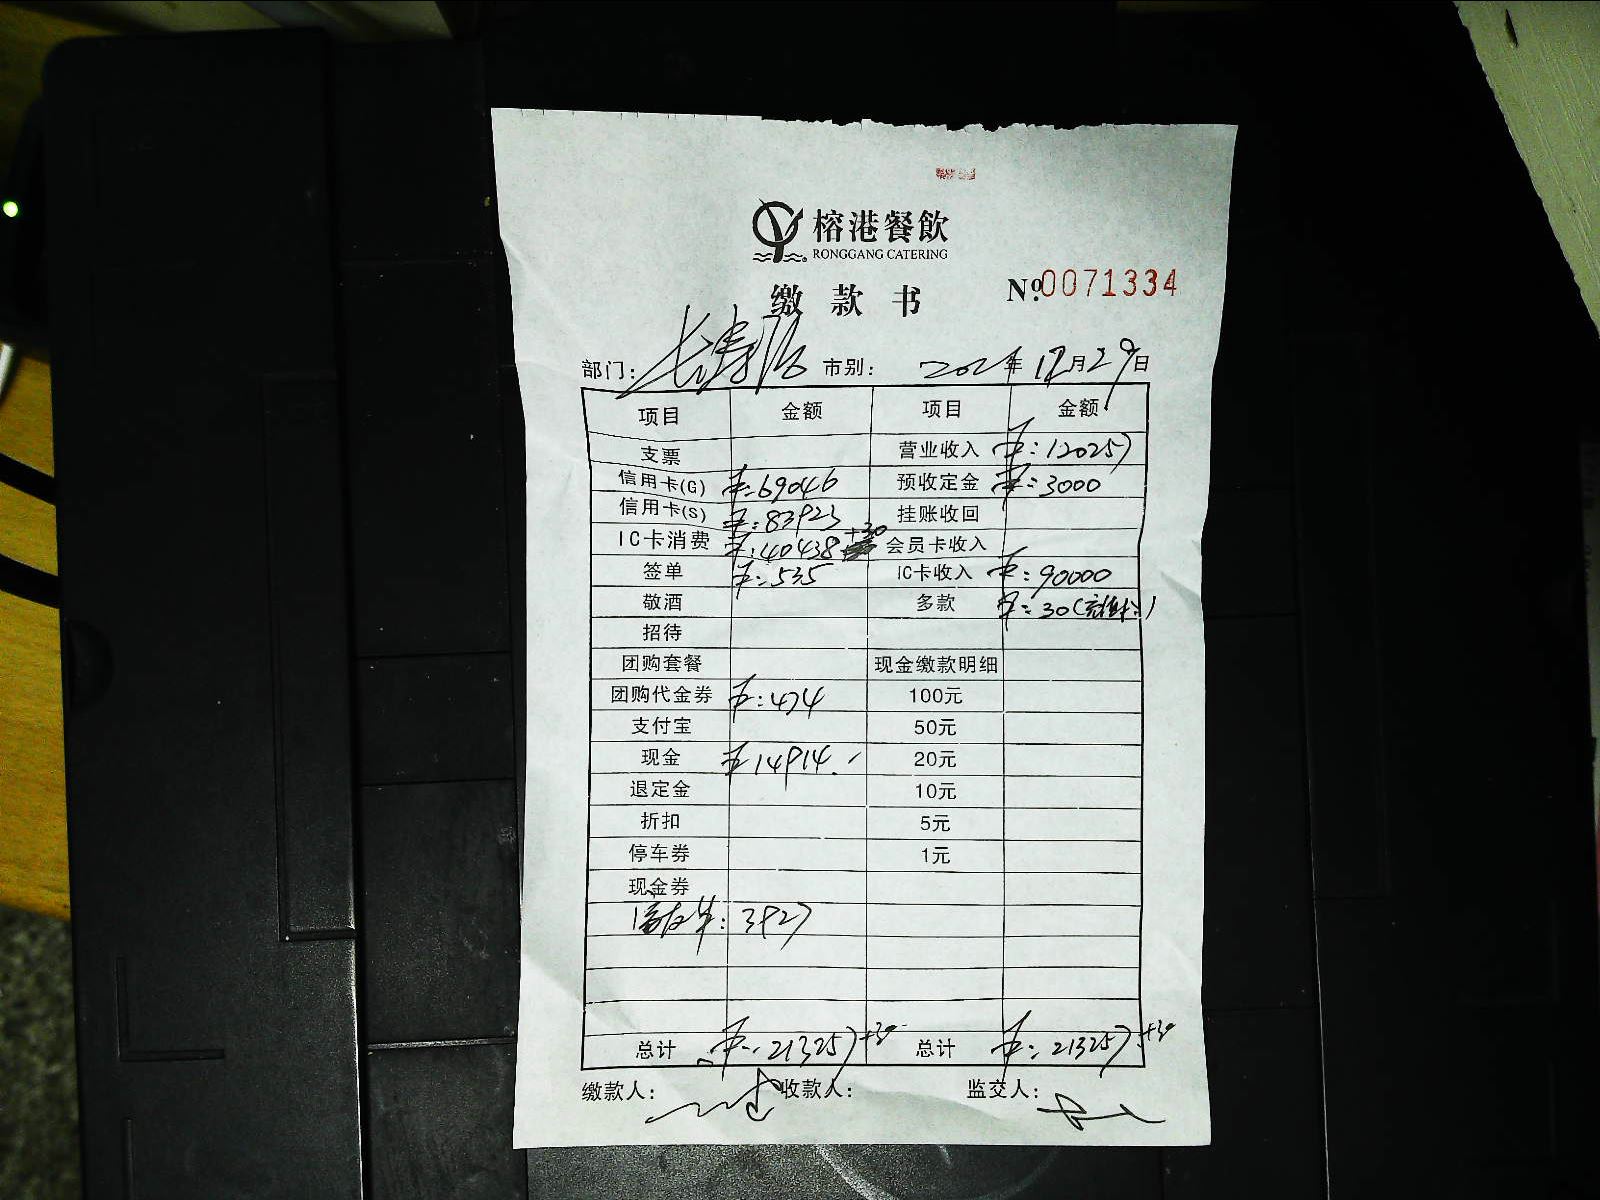 榕港餐飲
RONGGANG CATERING
缴款书 №0071334
部门: 长寿 市别: 2021年12月29日
项目 金额 项目 金额
支票 营业收入 ¥:120257
信用卡(G) ¥:69046 预收定金 ¥:3000
信用卡(S) ¥:83923 挂账收回
IC卡消费 ¥:40438+30 会员卡收入
签单 ¥:535 IC卡收入 ¥:90000
敬酒 多款 ¥:30
招待
团购套餐 现金缴款明细
团购代金券 ¥:474 100元
支付宝 50元
现金 ¥14914.- 20元
退定金 10元
折扣 5元
停车券 1元
现金券
: 3927
总计 ¥:213257+30 总计 ¥:213257+30
缴款人: 收款人: 监交人: